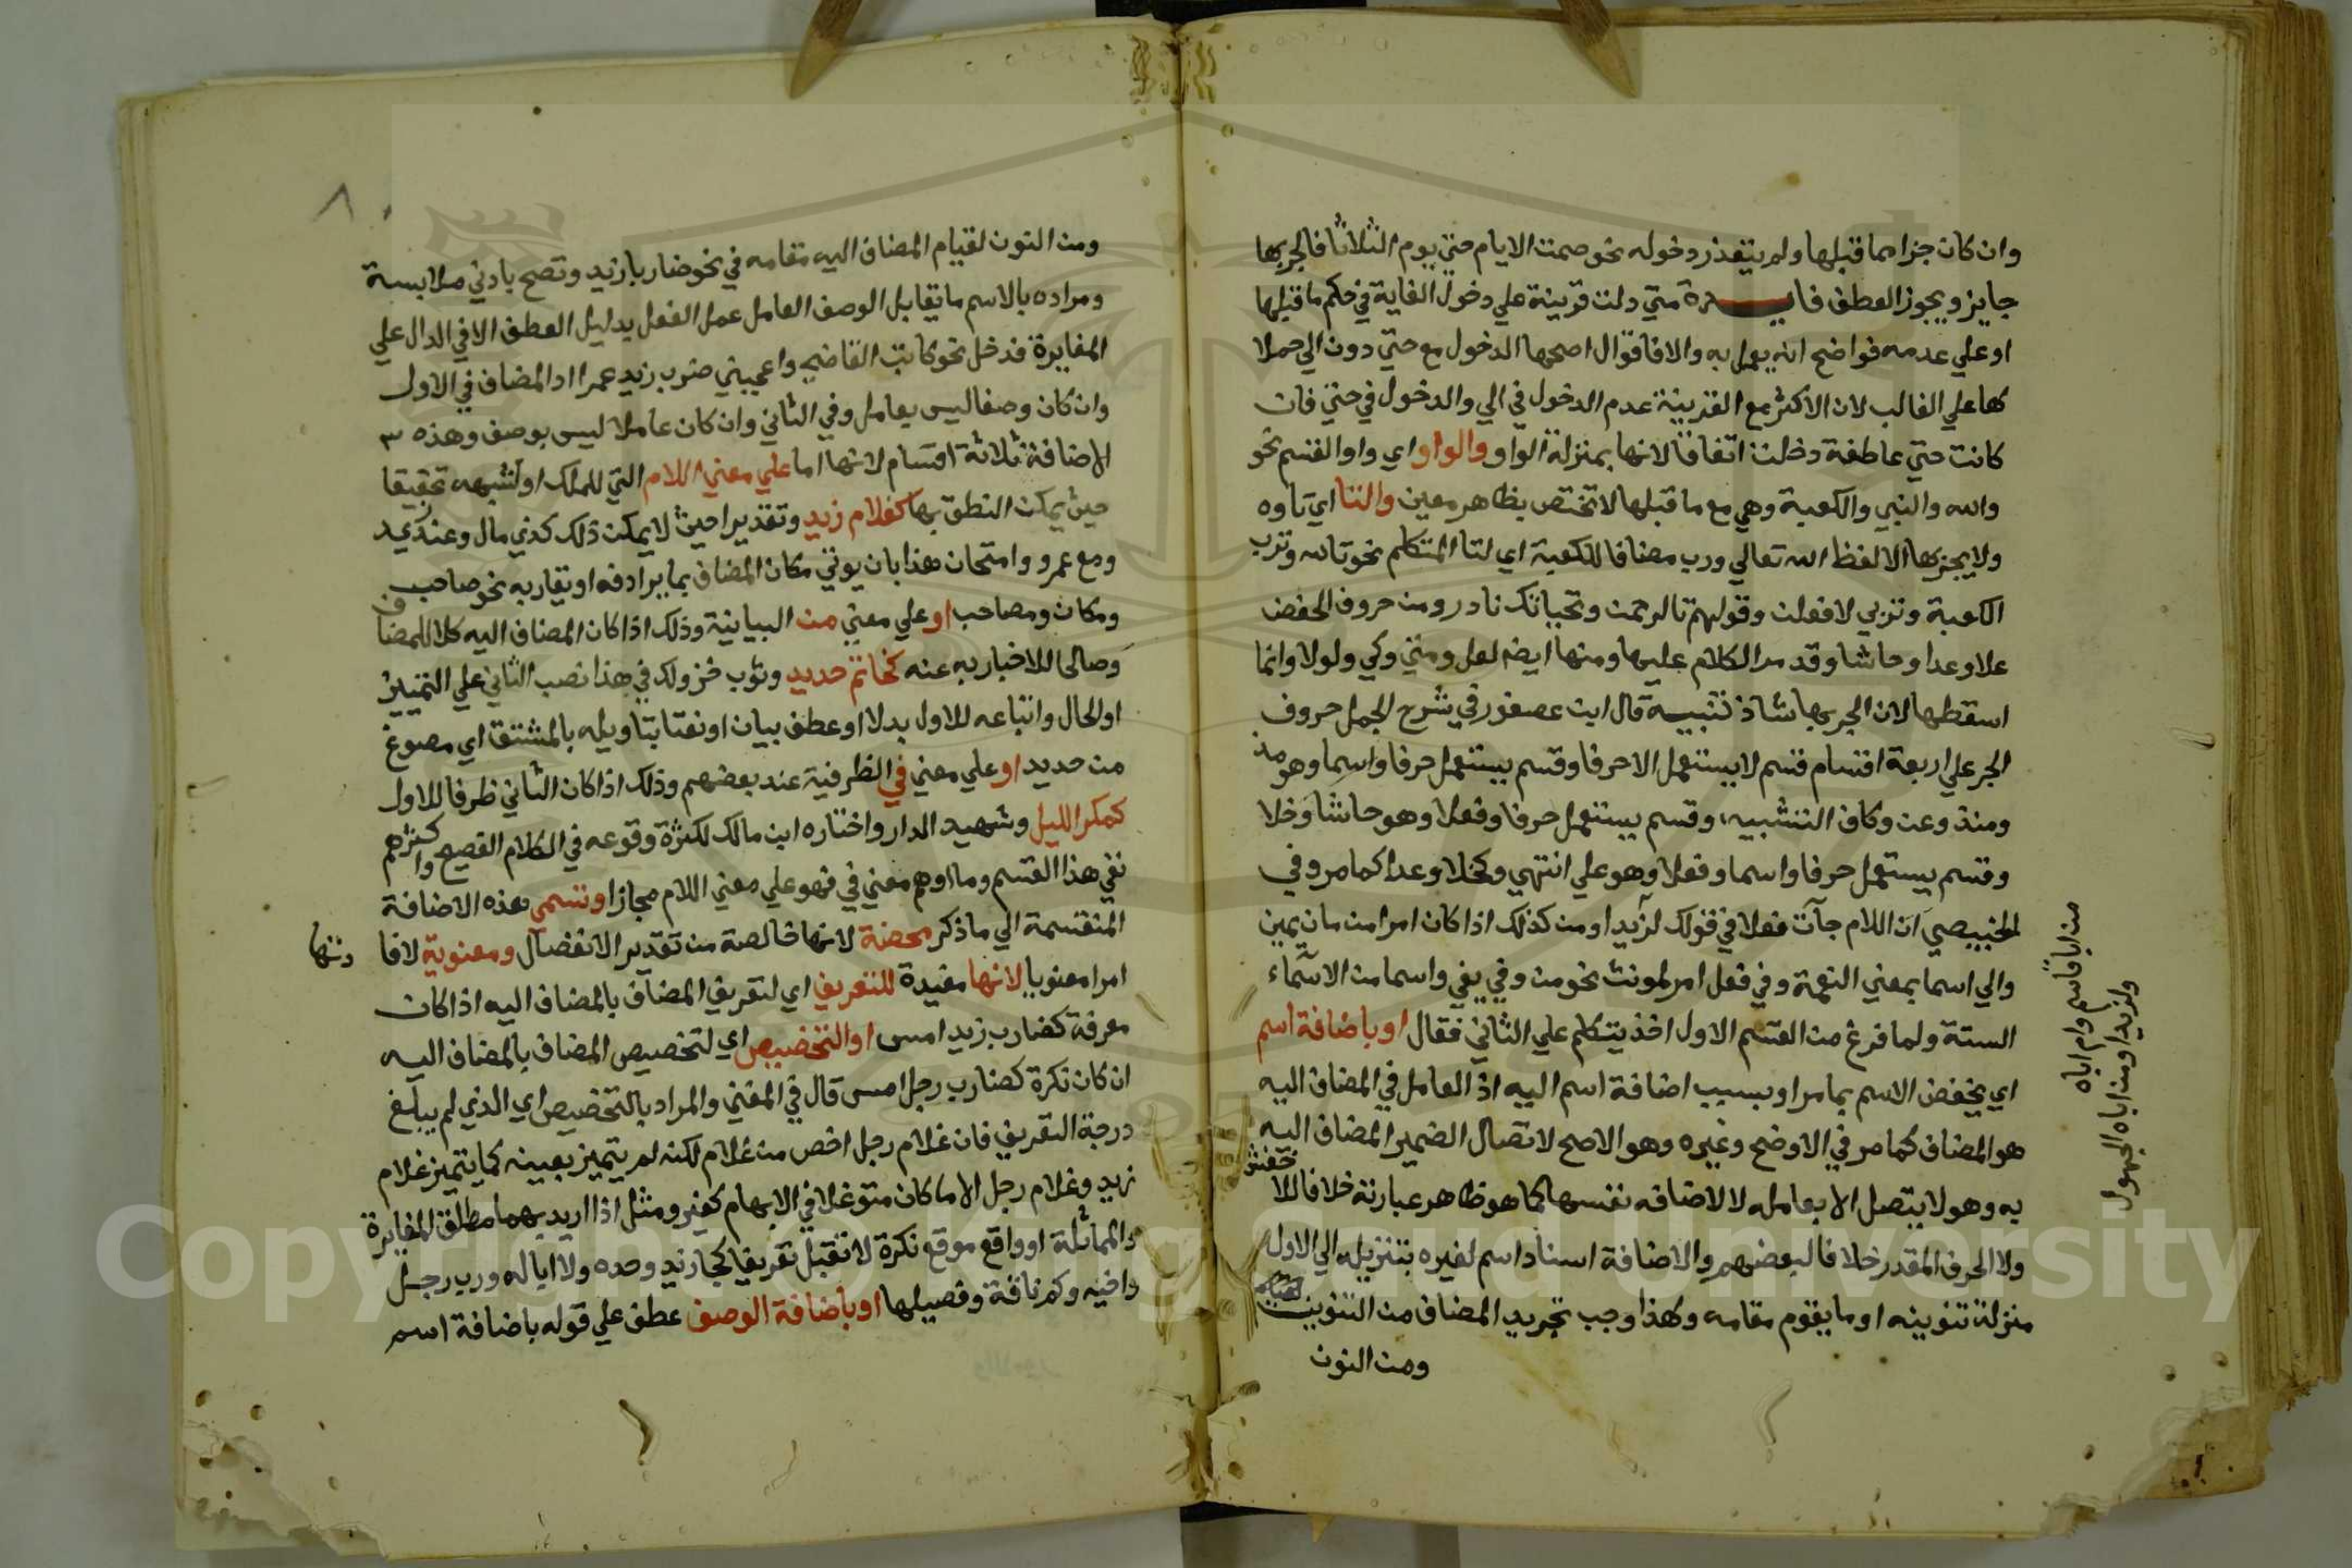 وان كان جزا مما قبلها ولم يتعذر دخوله نحو صمت الايام حتي يوم الثلاثا فالجر بها
جايز ويجوز العطف فايـــدة متي دلت قرينة علي دخول الغاية في حكم ما قبلها
او علي عدمه فواضح انه يعمل به والا فاقوال اصحها الدخول مع حتي دون الي حملا
لها علي الغالب لان الاكثر مع القرينة عدم الدخول في الي والدخول في حتي فان
كانت حتي عاطفة دخلت اتفاقا لانها بمنزلة الواو والواو اي واو القسم نحو
والله والنبي والكعبة وهي مع ما قبلها لا تختص بظاهر معين والتا اي تاوه
ولا يجر بها الا لفظ الله تعالي ورب مضافا للكعبة اي لتا المتكلم نحو تالله وترب
الكعبة وتربي لافعلن وقولهم تالرحمن وتحياتك نادر ومن حروف الخفض
خلا وعدا وحاشا وقد مر الكلام عليها ومنها ايضا لعل ومتي وكي ولولا وانما
اسقطها لان الجر بها شاذ تنبيـه قال ابن عصفور في شرح الجمل حروف
الجر علي اربعة اقسام قسم لا يستعمل الا حرفا وقسم يستعمل حرفا واسما وهو مذ
ومنذ وعن وكاف التشبيه، وقسم يستعمل حرفا وفعلا وهو حاشا وخلا
وقسم يستعمل حرفا واسما وفعلا وهو علي انتهي وكخلا وعدا كما مر وفي
الخبيصي ان اللام جآت فعلا في قولك لزيدا ومن كذلك اذا كان امرا من مان يمين
والي اسما بمعني النعمة وفي فعل امر لمونث نحو من وفي يفي واسما من الاسماء
الستة ولما فرغ من القسم الاول اخذ يتكلم علي الثاني فقال او باضافة اسم
اي يخفض الاسم بما مر او بسبب اضافة اسم اليه اذ العامل في المضاف اليه
هو المضاف كما مر في الاوضح وغيره وهو الاصح لاتصال الضمير المضاف اليه
به وهو لا يتصل الا بعامله لا الاضافه نفسها كما هو ظاهر عبارته خلافا للا
خفش
ولا الحرف المقدر خلافا لبعضهم والاضافة اسناد اسم لغيره بتنزيله الي الاول
منزلة تنوينه او ما يقوم مقامه ولهذا وجب تجريد المضاف من التنوين
ومن النون
من اباقاسم وام اباه
ولزيدا ومن اباه المجهول
٨
ومن النون لقيام المضاف اليه مقامه في نحو ضاربا زيد وتصح بادني ملابسة
ومراده بالاسم ما يقابل الوصف العامل عمل الفعل بدليل العطف الاتي الدال علي
المغايرة فدخل نحو كاتب القاضي واعجبني ضرب زيد عمرا اذ المضاف في الاول
وان كان وصفا ليس بعامل وفي الثاني وان كان عاملا ليس بوصف وهذه
الاضافة ثلاثة اقسام لانها اما علي معني اللام التي للملك او لشبهه تحقيقا
حيث يمكن النطق بها كغلام زيد وتقديرا حيث لا يمكن ذلك كذي مال وعند زيد
ومع عمرو وامتحان هذا بان يوتي مكان المضاف بما يرادفه او يقاربه نحو صاحب
ومكان ومصاحب او علي معني من البيانية وذلك اذا كان المضاف اليه كلا للمضاف
وصالحا للاخبار به عنه كخاتم حديد وثوب خز ولك في هذا نصب الثاني علي التمييز
او الحال واتباعه للاول بدلا او عطف بيان او نعتا بتاويله بالمشتق اي مصوغ
من حديد او علي معني في الظرفية عند بعضهم وذلك اذا كان الثاني ظرفا للاول
كمكر الليل وشهيد الدار واختاره ابن مالك لكثرة وقوعه في الكلام الفصيح واكثرهم
نفي هذا القسم وما اوهم معني في فهو علي معني اللام مجازا وتسمي هذه الاضافة
المنقسمة الي ما ذكر محضة لانها خالصة من تقدير الانفصال ومعنوية لافا
دتها
امرا معنويا لانها مفيدة للتعريف اي لتعريف المضاف بالمضاف اليه اذا كان
معرفة كضارب زيد امس او التخصيص اي لتخصيص المضاف بالمضاف اليه
ان كان نكرة كضارب رجل امس قال في المغني والمراد بالتخصيص اي الذي لم يبلغ
درجة التعريف فان غلام رجل اخص من غلام لكنه لم يتميز بعينه كما يتميز غلام
زيد وغلام رجل الا ما كان متوغلا في الابهام كغير ومثل اذا اريد بهما مطلق المغايرة
والمماثلة او واقع موقع نكرة لا تقبل تعريفا كجا زيد وحده ولا ابا له ورب رجل
واخيه وكم ناقة وفصيلها او باضافة الوصف عطف علي قوله باضافة اسم
Copyright © King Saud University